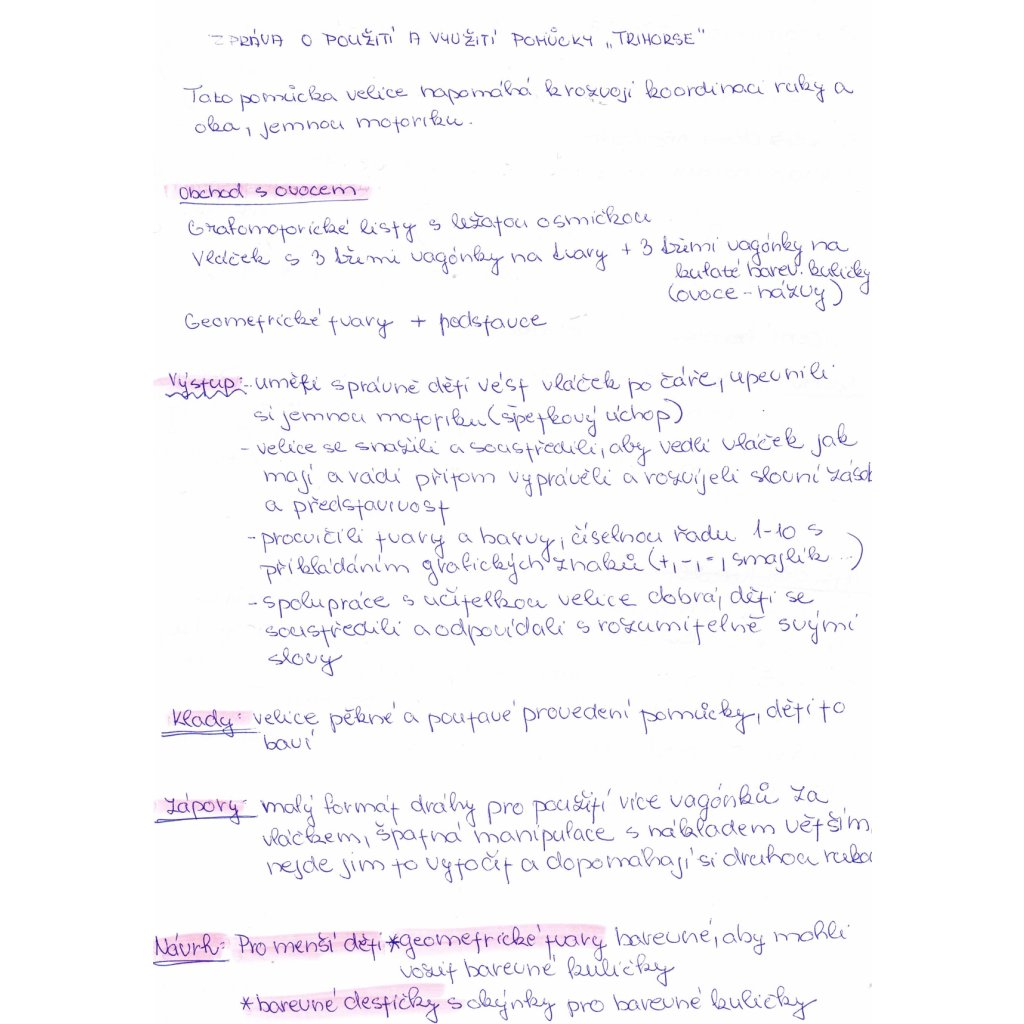 ZPRÁVA O POUŽITÍ A VYUŽITÍ POMŮCKY „TRIHORSE"
Tato pomůcka velice napomáhá k rozvoji koordinaci ruky a
oka, jemnou motoriku.
Obchod s ovocem
Grafomotorické listy s ležatou osmičkou
Vláček s 3 třemi vagónky na tvary + 3 třemi vagónky na
kulaté barev. kuličky
(ovoce - názvy)
Geometrické tvary + podstavce
Výstup: - uměli správně děti vést vláček po čáře, upevnili
si jemnou motoriku (špetkový úchop)
- velice se snažili a soustředili, aby vedli vláček jak
mají a rádi přitom vyprávěli a rozvíjeli slovní zásob
a představivost
- procvičili tvary a barvy, číselnou řadu 1-10 s
přikládáním grafických znaků (+, -, =, smajlík ...)
- spolupráce s učitelkou velice dobrá, děti se
soustředili a odpovídali srozumitelně svými
slovy
Klady: velice pěkné a poutavé provedení pomůcky, děti to
baví
Zápory: malý formát dráhy pro použití více vagónků za
vláčkem, špatná manipulace s nákladem větším,
nejde jim to vytočit a dopomáhají si druhou ruko
Návrh: Pro menší děti *geometrické tvary barevné, aby mohli
vozit barevné kuličky
*barevné destičky s okýnky pro barevné kuličky